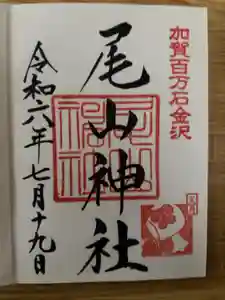 加賀百万石金沢
尾山神社
令和六年七月十九日